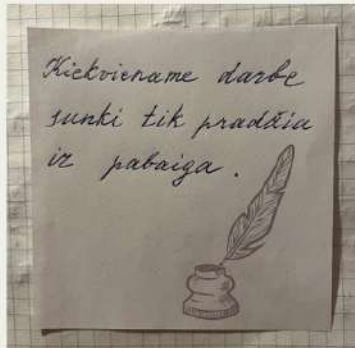 Kiekviename darbe
sunki tik pradžia
ir pabaiga.